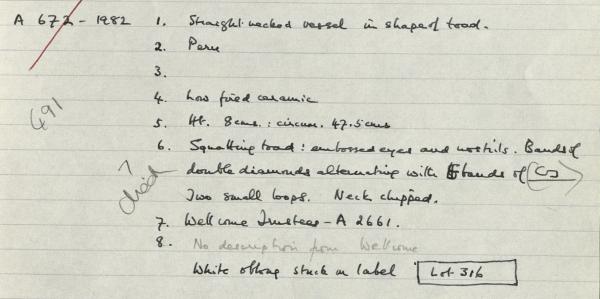 A 672 - 1982
1. Straight-necked vessel in shape of toad.
2. Peru
3.
4. Low fired ceramic
5. Ht. 8cms. : circum. 47.5cms
491
6. Squatting toad : embossed eyes and nostrils. Bands of
?
check
double diamonds alternating with bands of
Two small loops. Neck chipped.
7. Wellcome Trustees - A 2661.
8. No description from Wellcome
White oblong stuck on label Lot 316